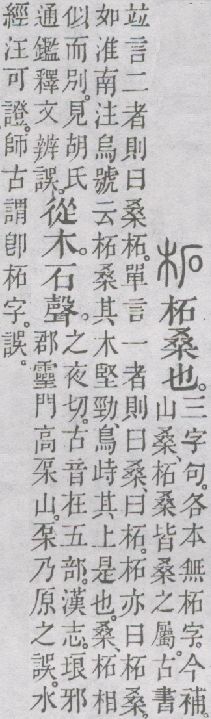 柘柘桑也。
三字句。各本無柘字。今補。
山桑、柘桑皆桑之屬。古書
竝言二者則曰桑柘。單言一者則曰桑、曰柘。柘亦曰柘桑。
如淮南注烏號云柘桑其木堅勁、鳥峙其上是也。桑、柘相
似而別。見胡氏
通鑑釋文辨誤。
從木。石聲。
之夜切。古音在五部。漢志。琅邪
郡靈門高山。乃原之誤。水
經注可證。師古謂卽柘字。誤。